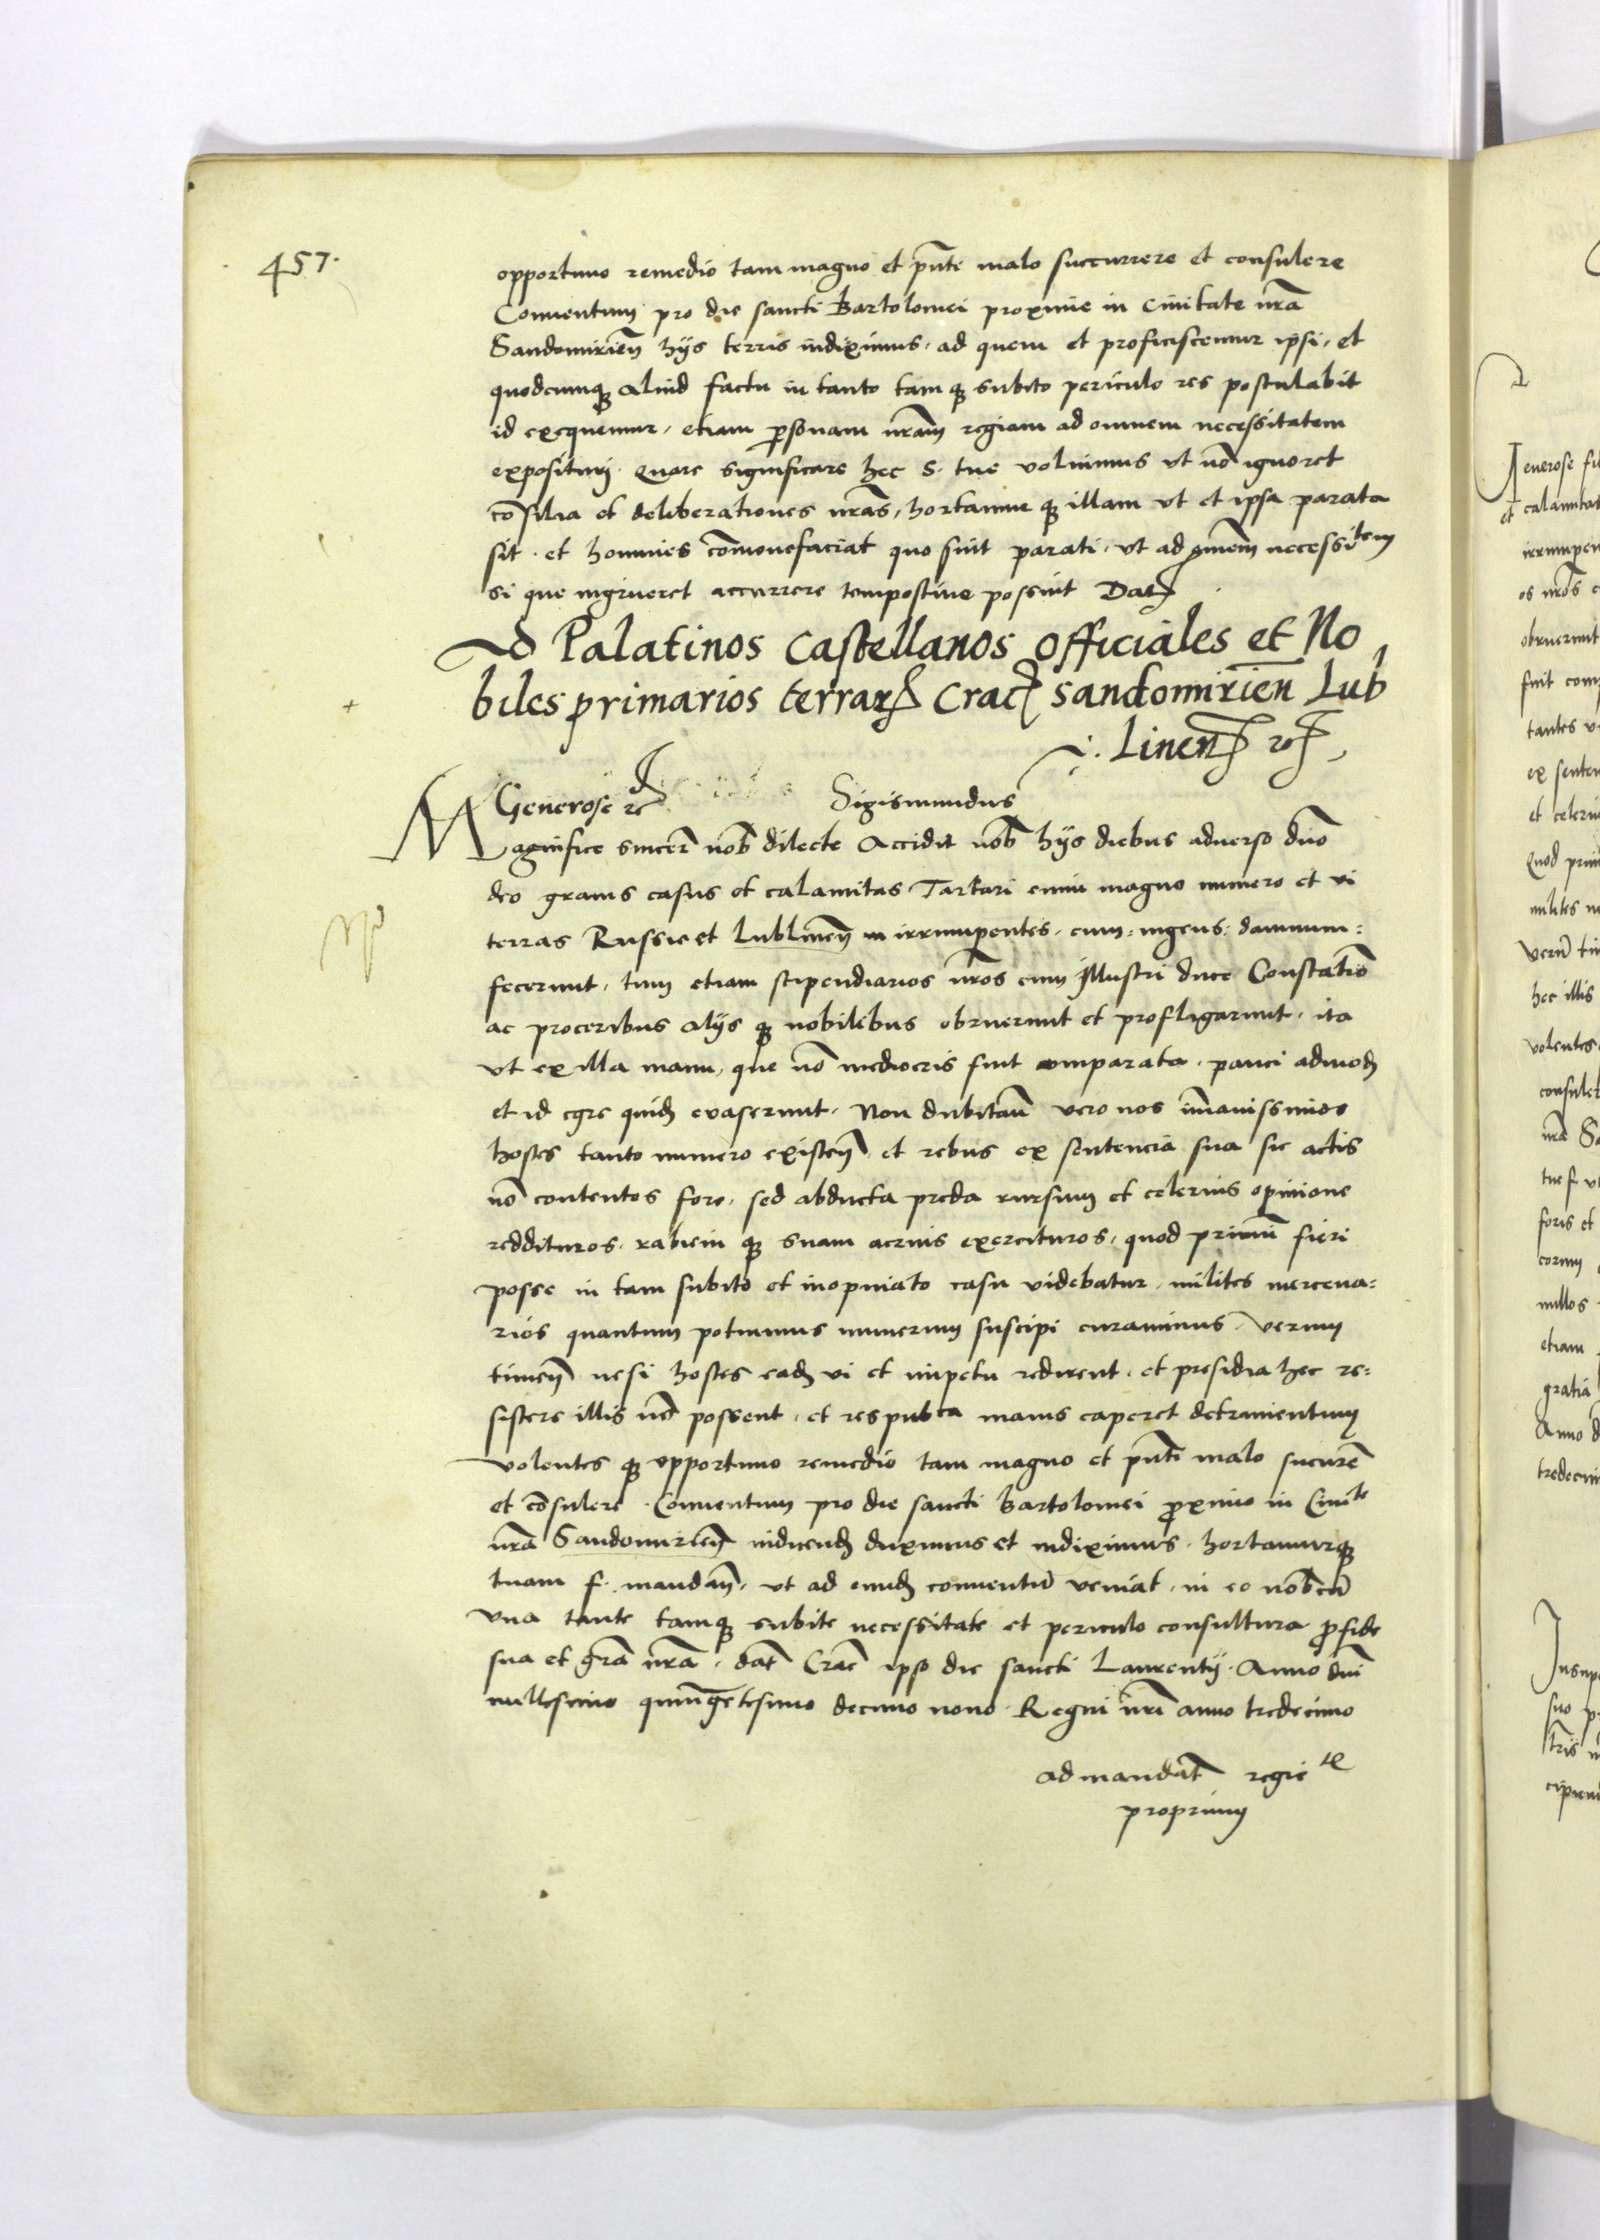 457.
opportuno remedio tam magno et pñti malo succurrere et consulere
Conuentum pro die sancti Bartolomei proximie in Ciuitate nrã
Sandomirień hijs terris indiximus, ad quem et proficiscemur ipsi, et
quodcumq aliud factu in tanto tam q subito periculo res postulabit
id exequemur, etiam psonam nrãm regiam ad omnem necessitatem
exposituri. Quare significare hec S. tue voluimus vt nõ ignoret
cõsilia et deliberationes nrãs, hortamur q illam vt et ipsa parata
sit. et homines cõmonefaciat quo sint parati, vt ad omnem necessitem
si que ingrueret accurrere tempostiue possint Dat
Ad Palatinos Castellanos officiales et No
biles primarios terrar Crac sandomirien Lub
Linen rc
Generose rc Sigismundus
Magnifice sincer nob dilecte Accidit nob hijs diebus aduerso dno
deo grauis casus et calamitas Tartari enim magno numero et vi
terras Russie et Lublineñ irrumpentes, cum ingens damnum
fecerunt, tum etiam stipendiarios nrõs cum Illustri duce Constãtio
ac proceribus alijs q nobilibus obruerunt et profligarunt, ita
vt ex illa manu, que nõ mediocris fuit comparata, pauci admod
et id egre quid euaserunt. Non dubitañ vero nos imanissimos
hostes tanto numero existeñ et rebus ex sentencia sua sic actis
nõ contentos fore, sed abducta preda rursum et celerius opinione
reddituros, rabiem q suam acrius exercituros, quod primũ fieri
posse in tam subito et inopinato casu videbatur, milites mercena=
rios quantum potuimus numerum suscipi curauimus, verum
timeñ ne si hostes ead vi et impetu redirent, et presidia hec re=
sistere illis nõ possent, et respubca maius caperet detrimentum
volentes q opportuno remedio tam magno et pñti malo sucurẽ
et cõsulere. Conuentum pro die sancti Bartolomei pximo in Ciuite
nrã Sandomirień indicend duximus et indiximus, hortamurq
tuam f. mandañ, vt ad eund conuentũ veniat, in eo nobcũ
vna tante tamq subite necessitate et periculo consultura p fide
sua et grã nrã. dat Crac ipso die sancti Laurentij. Anno dñi
millesimo quingetesimo decimo nono. Regni nrĩ anno tredecimo
ad mandat regie te
proprium